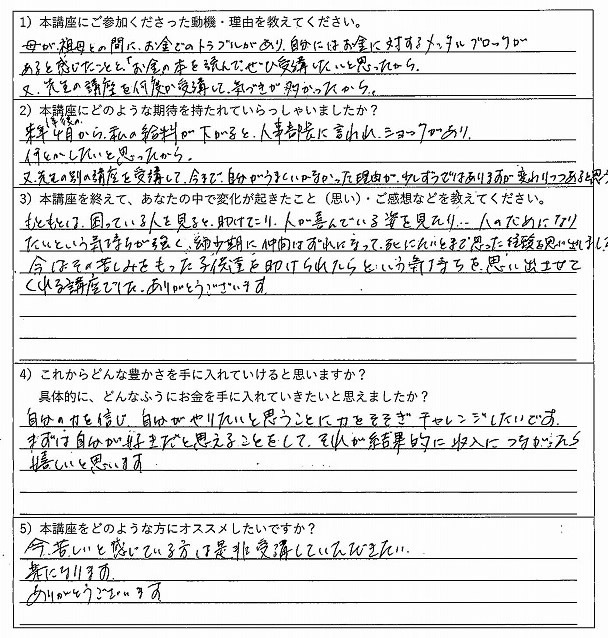 1）本講座にご参加くださった動機・理由を教えてください。
母が祖母との間に、お金でのトラブルがあり、自分にはお金に対するメンタルブロックが
あると感じたことと、「お金の本を読んで、ぜひ受講したいと思ったから。
又、先生の講座を何度か受講して、気づきが多かったから。
2）本講座にどのような期待を持たれていらっしゃいましたか？
来年4月から、私の給料が下がると、人事部長に言われ、ショックがあり、
何とかしたいと思ったから。
又、先生の別の講座を受講して、今まで、自分がうまくいかなかった理由が、少しずつではありますが変わりつつあると思う
3）本講座を終えて、あなたの中で変化が起きたこと（思い）・ご感想などを教えてください。
もともとは、困っている人を見ると、助けてたり、人が喜んでいる姿を見たり… 人のためになり
たいという気持ちが強く、幼少期に仲間はずれになって、死にたいとまで思った経験を思い出しまし
今はその苦しみをもった子供達を助けられたらという気持ちを思い出させて
くれる講座でした。ありがとうございます
4）これからどんな豊かさを手に入れていけると思いますか？
具体的に、どんなふうにお金を手に入れていきたいと思えましたか？
自分の力を信じ、自分がやりたいと思うことに力をそそぎ チャレンジしたいです。
まずは自分が好きだと思えることをして、それが結果的に収入につながったら
嬉しいと思います
5）本講座をどのような方にオススメしたいですか？
今、苦しいと感じている方は是非受講していただきたい。
楽になります。
ありがとうございます